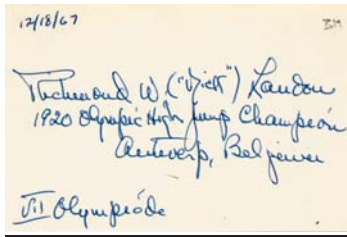 12/18/67
BM
Richmond W. ("Dick") Landon
1920 Olympic High Jump Champion
Antwerp, Belgium
VII Olympiáde